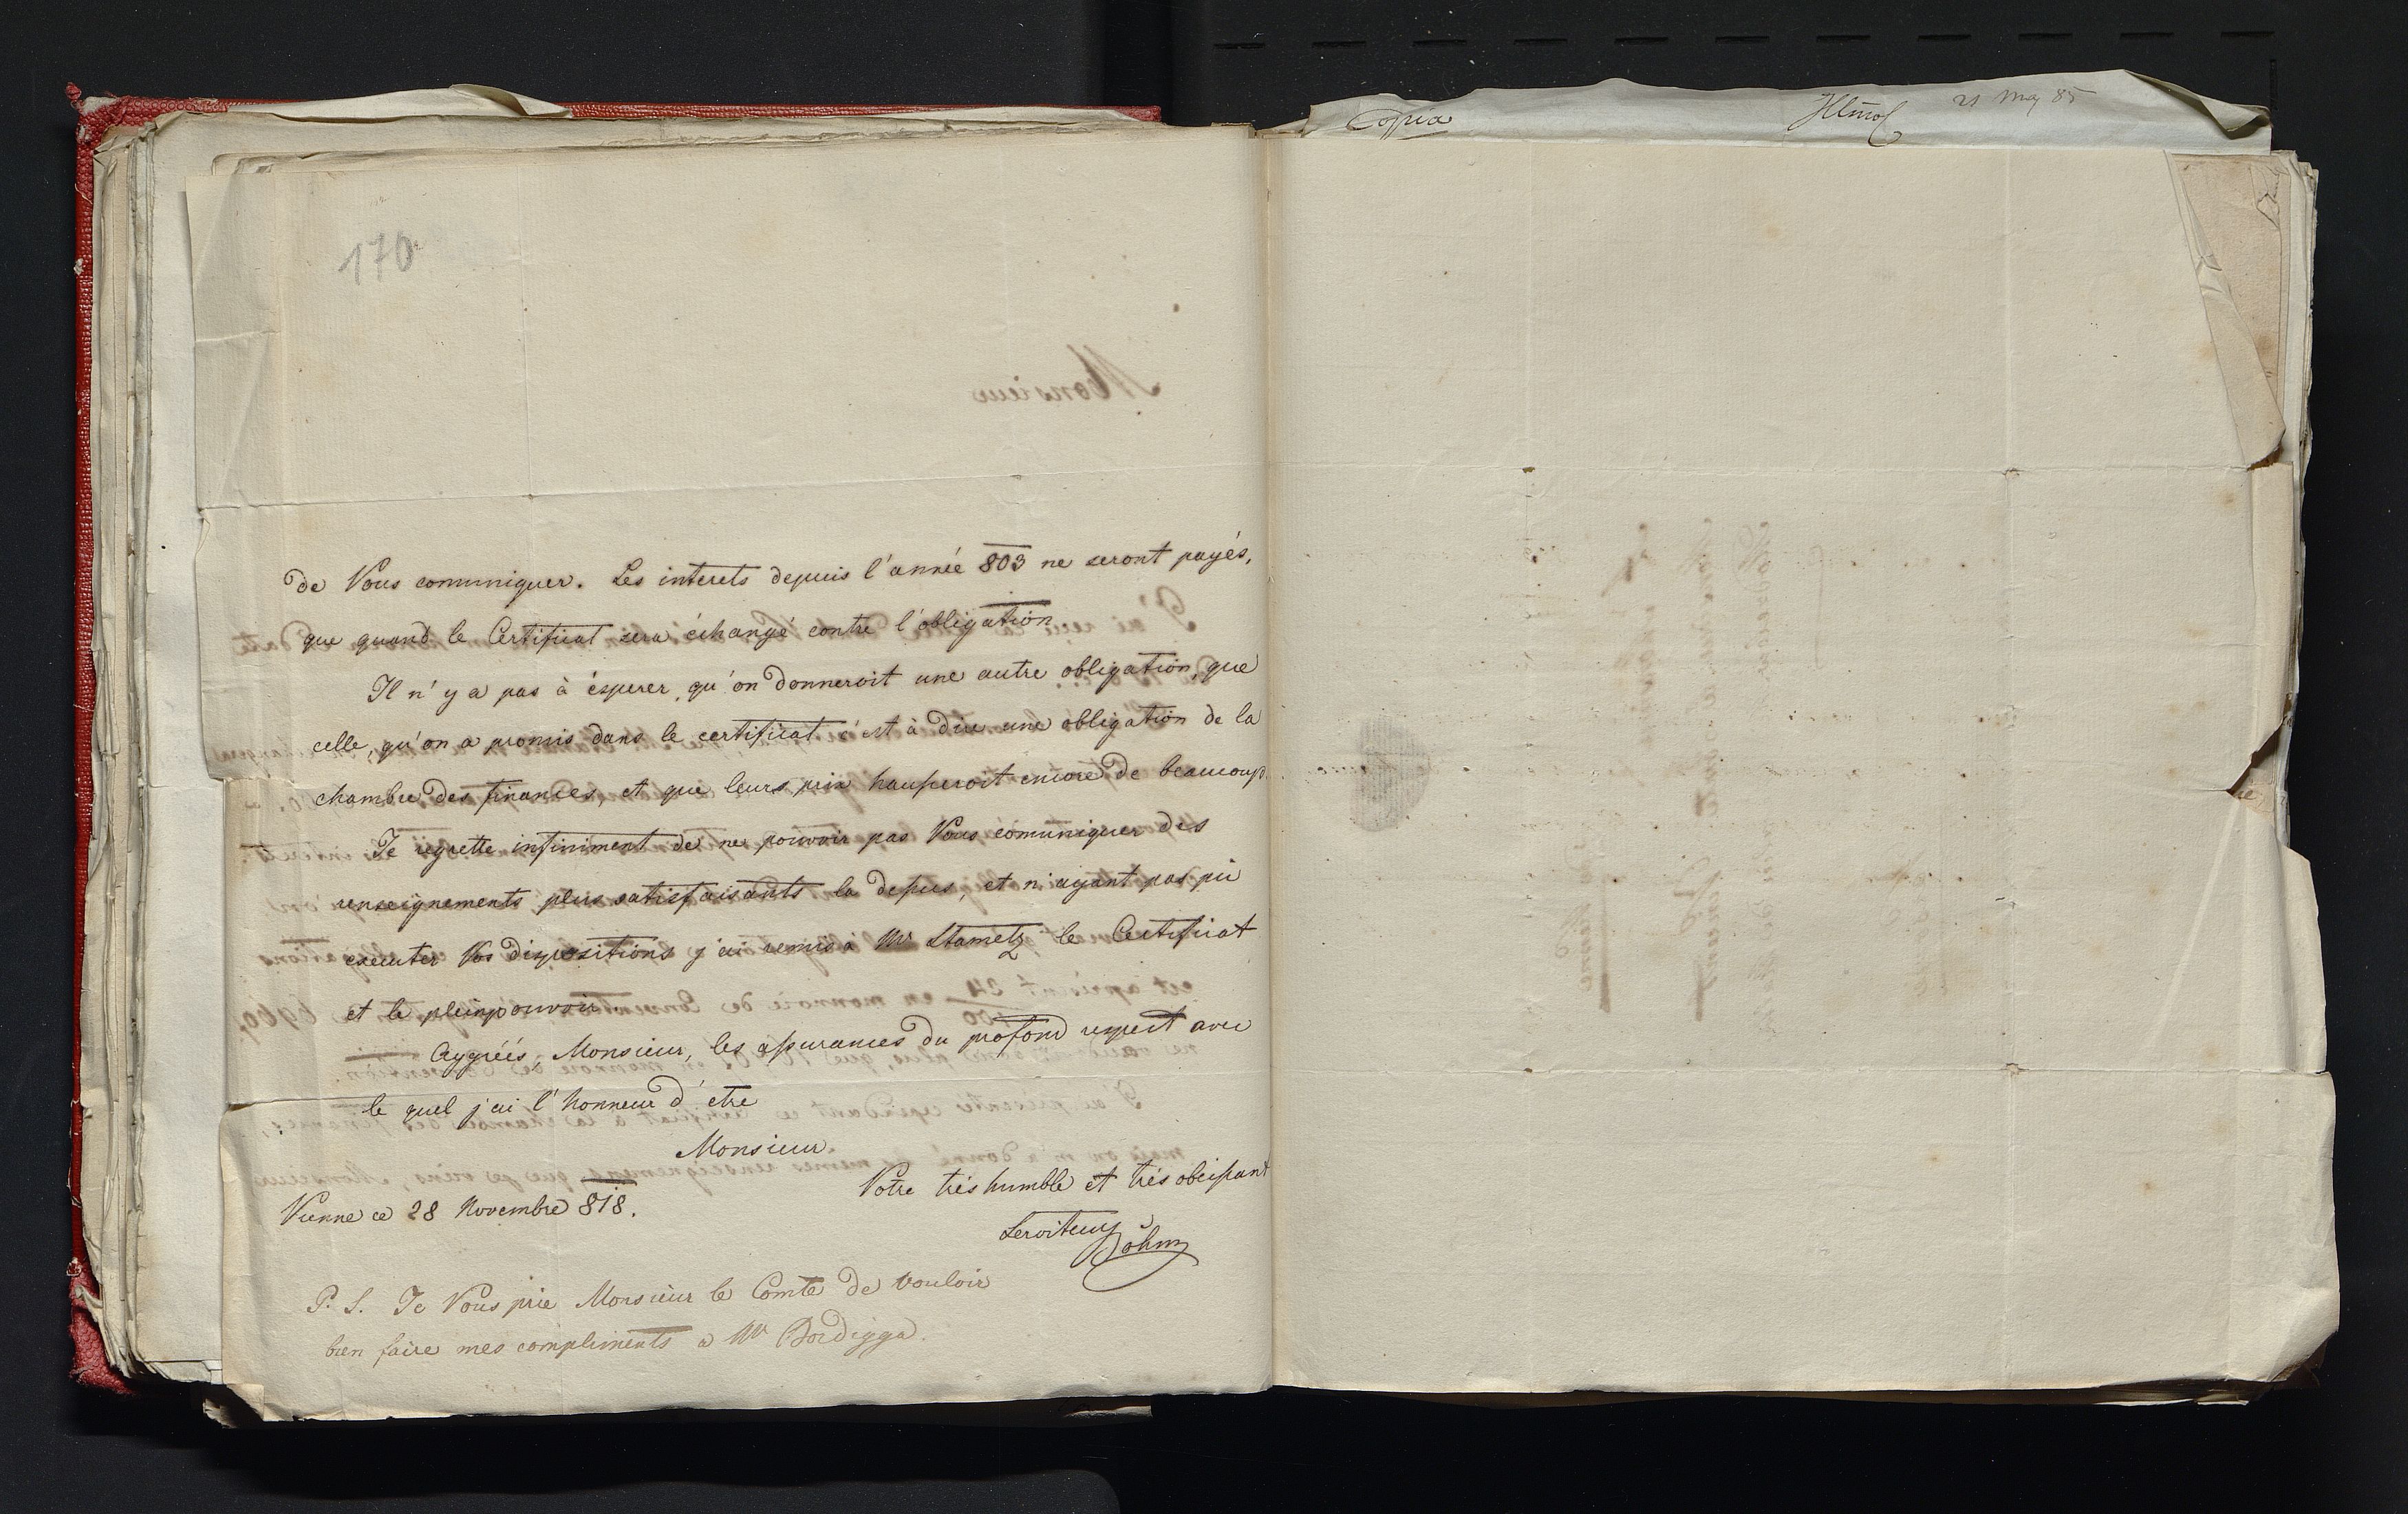 170
de Vous communiquer. Les interets depuis l'année 803 ne seront payés,
que quand le Certificat sera échangé contre l'obligation
Il n'y a pas à ésperer, qu'on donneroit une autre obligation, que
celle, qu'on a promis dans le certificat c'est à dire une obligation de la
chambre des finances, et que leurs prix hausseroit encore de beaucoup.
Je regrette infiniment de ne pouvoir pas Vous comuniquer des
renseignements plus satisfaisants la dessus, et n'ayant pas pû
executer Vos dispositions j'ai remis à Mr Stametz le Certificat
et le pleinpouvoir
Aggréés, Monsieur, les assurances du profond respect avec
le quel j'ai l'honneur d'etre
Monsieur
Votre trés humble et trés obeissant
Vienne ce 28 Novembre 818.
Serviteur
Böhm
P. S. Je Vous prie Monsieur le Comte de vouloir
bien faire mes compliments a Mr Bordigga.
Copia
21 Mag 85